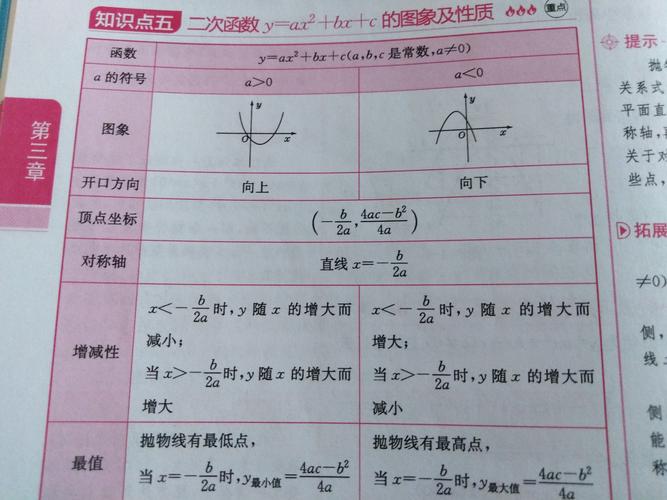 知识点五 二次函数 y=ax²+bx+c 的图象及性质 重点
函数 y=ax²+bx+c(a,b,c 是常数,a≠0)
a 的符号 a>0 a<0
图象 y O x y O x
开口方向 向上 向下
顶点坐标 (-b/2a, 4ac-b²/4a)
对称轴 直线 x=-b/2a
增减性
x<-b/2a时,y 随 x 的增大而
减小;
当 x>-b/2a时,y 随 x 的增大而
增大
x<-b/2a时,y 随 x 的增大而
增大;
当 x>-b/2a时,y 随 x 的增大而
减小
最值
抛物线有最低点,
当 x=-b/2a时,y最小值=4ac-b²/4a
抛物线有最高点,
当 x=-b/2a时,y最大值=4ac-b²/4a
第三章
提示
抛物
关系式
平面直
称轴,再
关于对
些点,
拓展
≠0)
侧,
线
侧
能
称